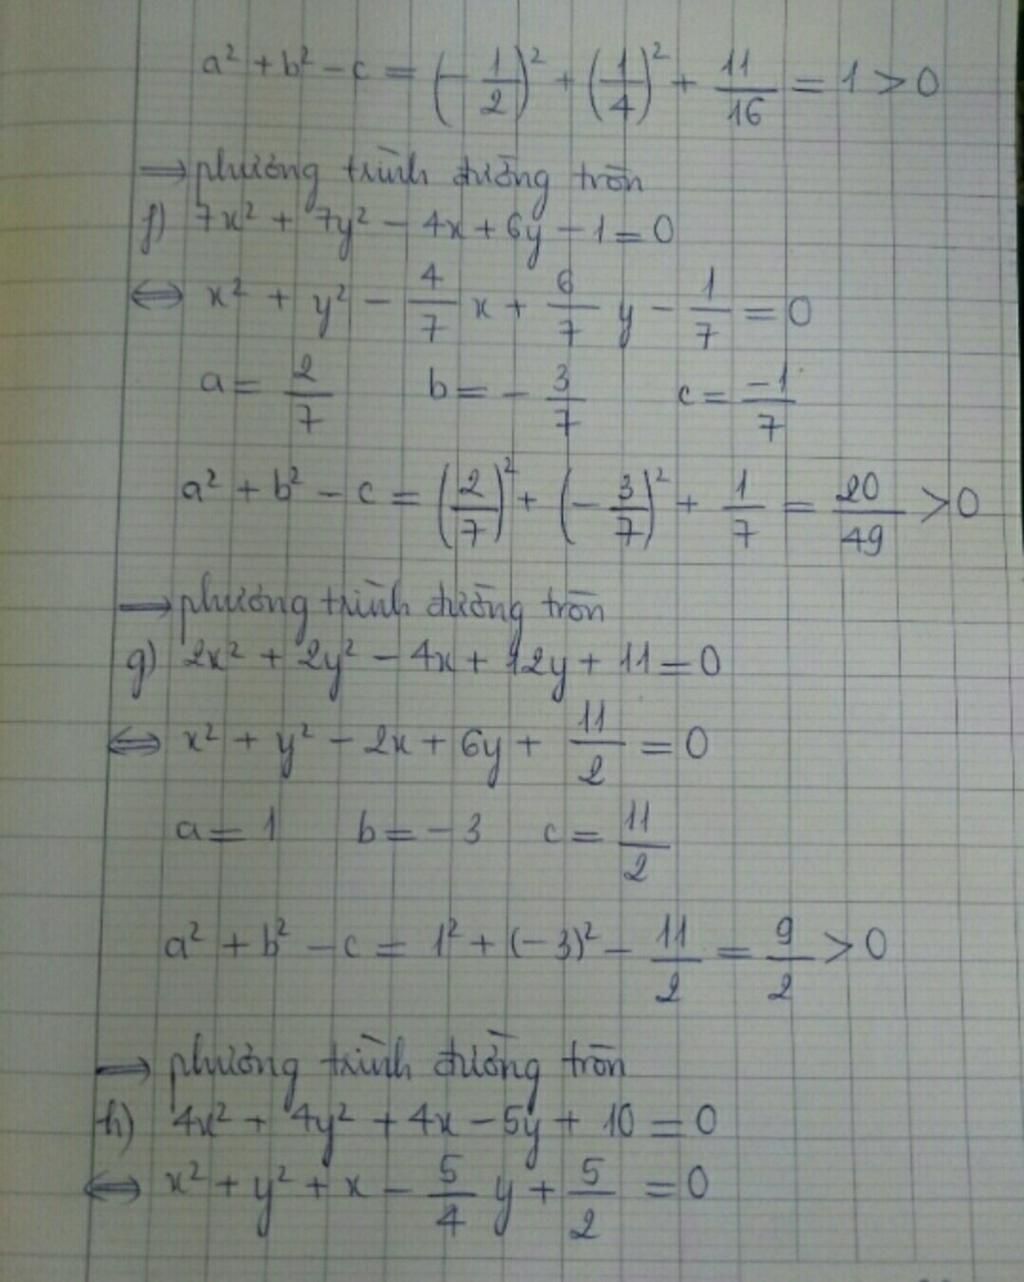 a² + b² - c = (-1/2)² + (1/4)² + 11/16 = 1 > 0
→ phương trình đường tròn
f) 7x² + 7y² - 4x + 6y - 1 = 0
⇔ x² + y² - 4/7 x + 6/7 y - 1/7 = 0
a = 2/7 b = - 3/7 c = -1/7
a² + b² - c = (2/7)² + (-3/7)² + 1/7 = 20/49 > 0
→ phương trình đường tròn
g) 2x² + 2y² - 4x + 12y + 11 = 0
⇔ x² + y² - 2x + 6y + 11/2 = 0
a = 1 b = -3 c = 11/2
a² + b² - c = 1² + (-3)² - 11/2 = 9/2 > 0
→ phương trình đường tròn
h) 4x² + 4y² + 4x - 5y + 10 = 0
⇔ x² + y² + x - 5/4 y + 5/2 = 0